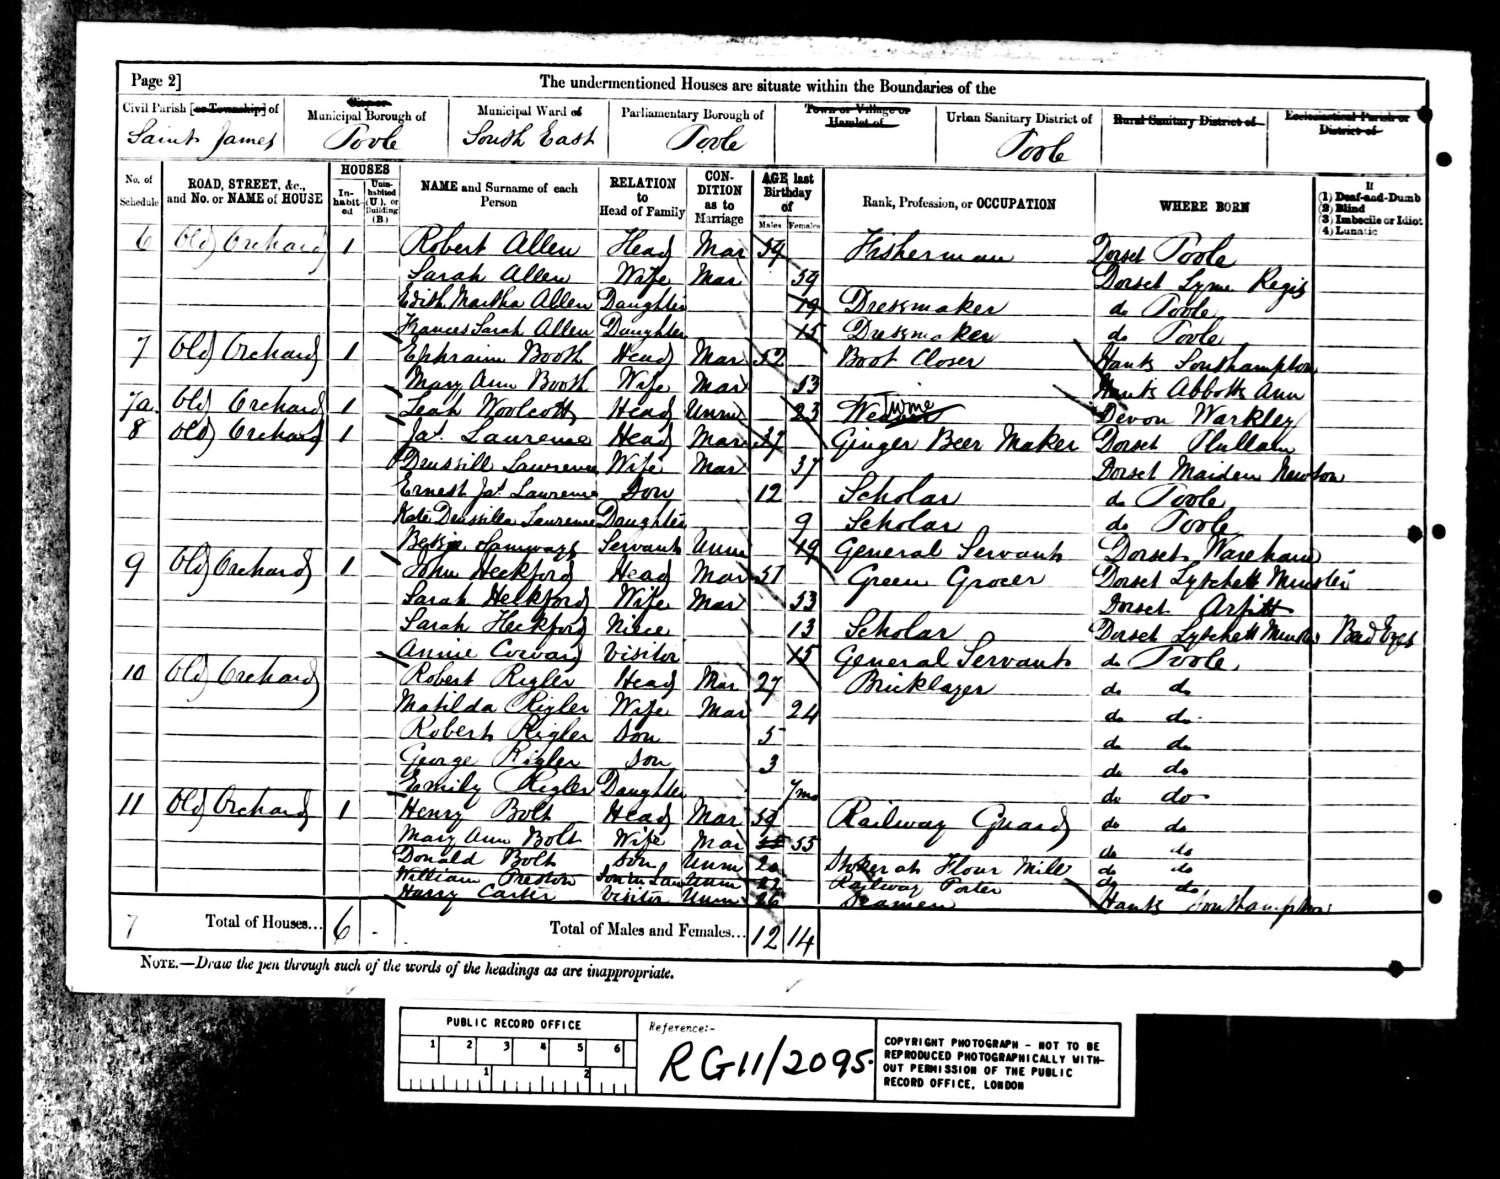 Page 2]
The undermentioned Houses are situate within the Boundaries of the
Civil Parish [or Township] of
Saint James
City or
Municipal Borough of
Poole
Municipal Ward of
South East
Parliamentary Borough of
Poole
Town or Village or
Hamlet of
Urban Sanitary District of
Poole
Rural Sanitary District of
Ecclesiastical Parish or
District of
No. of Schedule
ROAD, STREET, &c., and No. or NAME of HOUSE
HOUSES
In-habit-ed
Unin-habited (U.), or Building (B.)
NAME and Surname of each Person
RELATION to Head of Family
CON-DITION as to Marriage
AGE last Birthday of
Males
Females
Rank, Profession, or OCCUPATION
WHERE BORN
If
(1) Deaf-and-Dumb
(2) Blind
(3) Imbecile or Idiot
(4) Lunatic
6 Old Orchard 1 Robert Allen Head Mar 59 Fisherman Dorset Poole
Sarah Allen Wife Mar 59 Dorset Lyme Regis
Edith Martha Allen Daughter 19 Dressmaker do Poole
Frances Sarah Allen Daughter 15 Dressmaker do Poole
7 Old Orchard 1 Ephraim Booth Head Mar 52 Boot Closer Hants Southampton
Mary Ann Booth Wife Mar 53 Hants Abbotts Ann
7a. Old Orchard 1 Leah Woolcott Head Unm 23 Devon Warkley
8 Old Orchard 1 Jas. Laurence Head Mar 37 Ginger Beer Maker Dorset
Drussill Lawrence Wife Mar 37 Dorset Maiden Newton
Ernest Jas. Laurence Son 12 Scholar do Poole
Kate Drussilla Laurence Daughter 9 Scholar do Poole
Bessie Samways Servant Unm 19 General Servant Dorset Wareham
9 Old Orchard 1 John Heckford Head Mar 51 Green Grocer Dorset Lytchett Minster
Sarah Heckford Wife Mar 53 Dorset
Sarah Heckford Niece 13 Scholar Dorset Lytchett Minster Bad Eyes
Annie Coward Visitor 15 General Servant do Poole
10 Old Orchard Robert Rigler Head Mar 27 Bricklayer do do
Matilda Rigler Wife Mar 24 do do
Robert Rigler Son 5 do do
George Rigler Son 3 do do
Emily Rigler Daughter 7mo do do
11 Old Orchard 1 Henry Bolt Head Mar 59 Railway Guard do do
Mary Ann Bolt Wife Mar 55 do do
Donald Bolt Son Unm 20 Stoker at Flour Mill do do
William Preston Son in Law Unm 22 Railway Porter do do
Harry Carter Visitor Unm 26 Seamen Hants Southampton
7 Total of Houses... 6 - Total of Males and Females... 12 14
NOTE.—Draw the pen through such of the words of the headings as are inappropriate.
PUBLIC RECORD OFFICE
1 2 3 4 5 6
1 2
Reference:-
RG11/2095
COPYRIGHT PHOTOGRAPH - NOT TO BE
REPRODUCED PHOTOGRAPHICALLY WITH-
OUT PERMISSION OF THE PUBLIC
RECORD OFFICE, LONDON